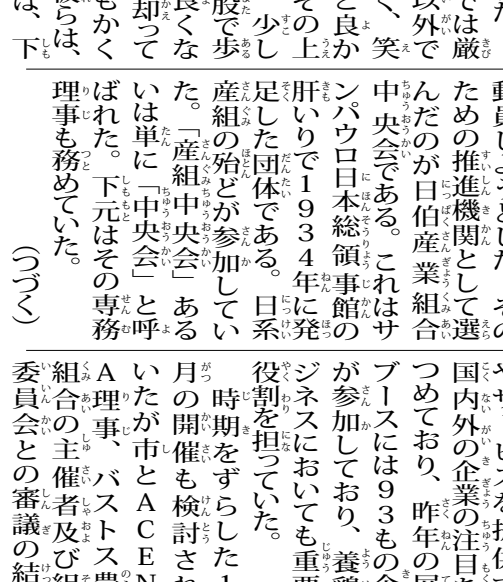 では厳
以外で
く、笑
と良か
その上
少し
股で歩
良くな
却って
もかく
彼らは、
は、下
動員しようとした。その
ための推進機関として選
んだのが日伯産業組合
中央会である。これはサ
ンパウロ日本総領事館の
肝いりで1934年に発
足した団体である。日系
産組の殆どが参加してい
た。「産組中央会」ある
いは単に「中央会」と呼
ばれた。下元はその専務
理事も務めていた。
(つづく)
やサービスを提供
国内外の企業の注目
つめており、昨年の
ブースには93もの
が参加しており、養鶏
ジネスにおいても重要
役割を担っていた。
時期をずらした1
月の開催も検討され
いたが市とACEN
A理事、バストス農
組合の主催者及び組
委員会との審議の結